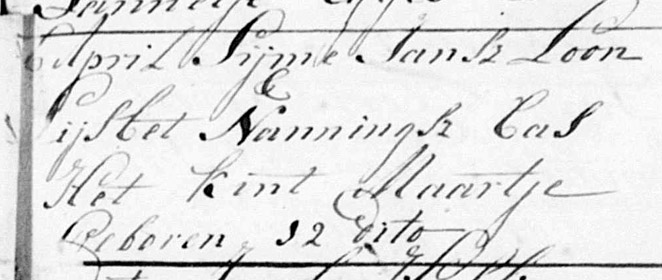 April Sijme Jansz Loon
&
Lijsbet Nanningsz Cas
Het kint Maartje
Geboren 12 dito